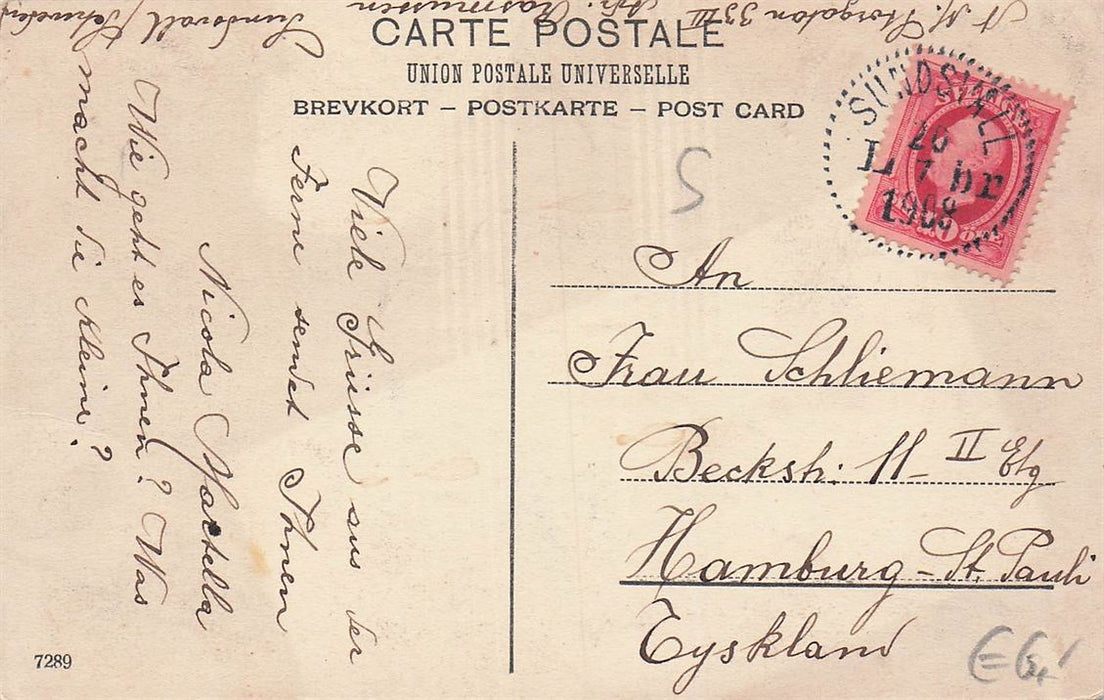 CARTE POSTALE
UNION POSTALE UNIVERSELLE
BREVKORT – POSTKARTE – POST CARD
SUNDSVALL
26
L 7 br
1908
S
An
Frau Schliemann
Becksh: 11 II Etg
Hamburg-St. Pauli
Tyskland
Viele Grüsse aus der
Ferne sendet Ihnen
Nicola
Wie geht es Ihnen? Was
macht die Kleine?
Rasmussen
Storgatan 33 III
Sundsvall
7289